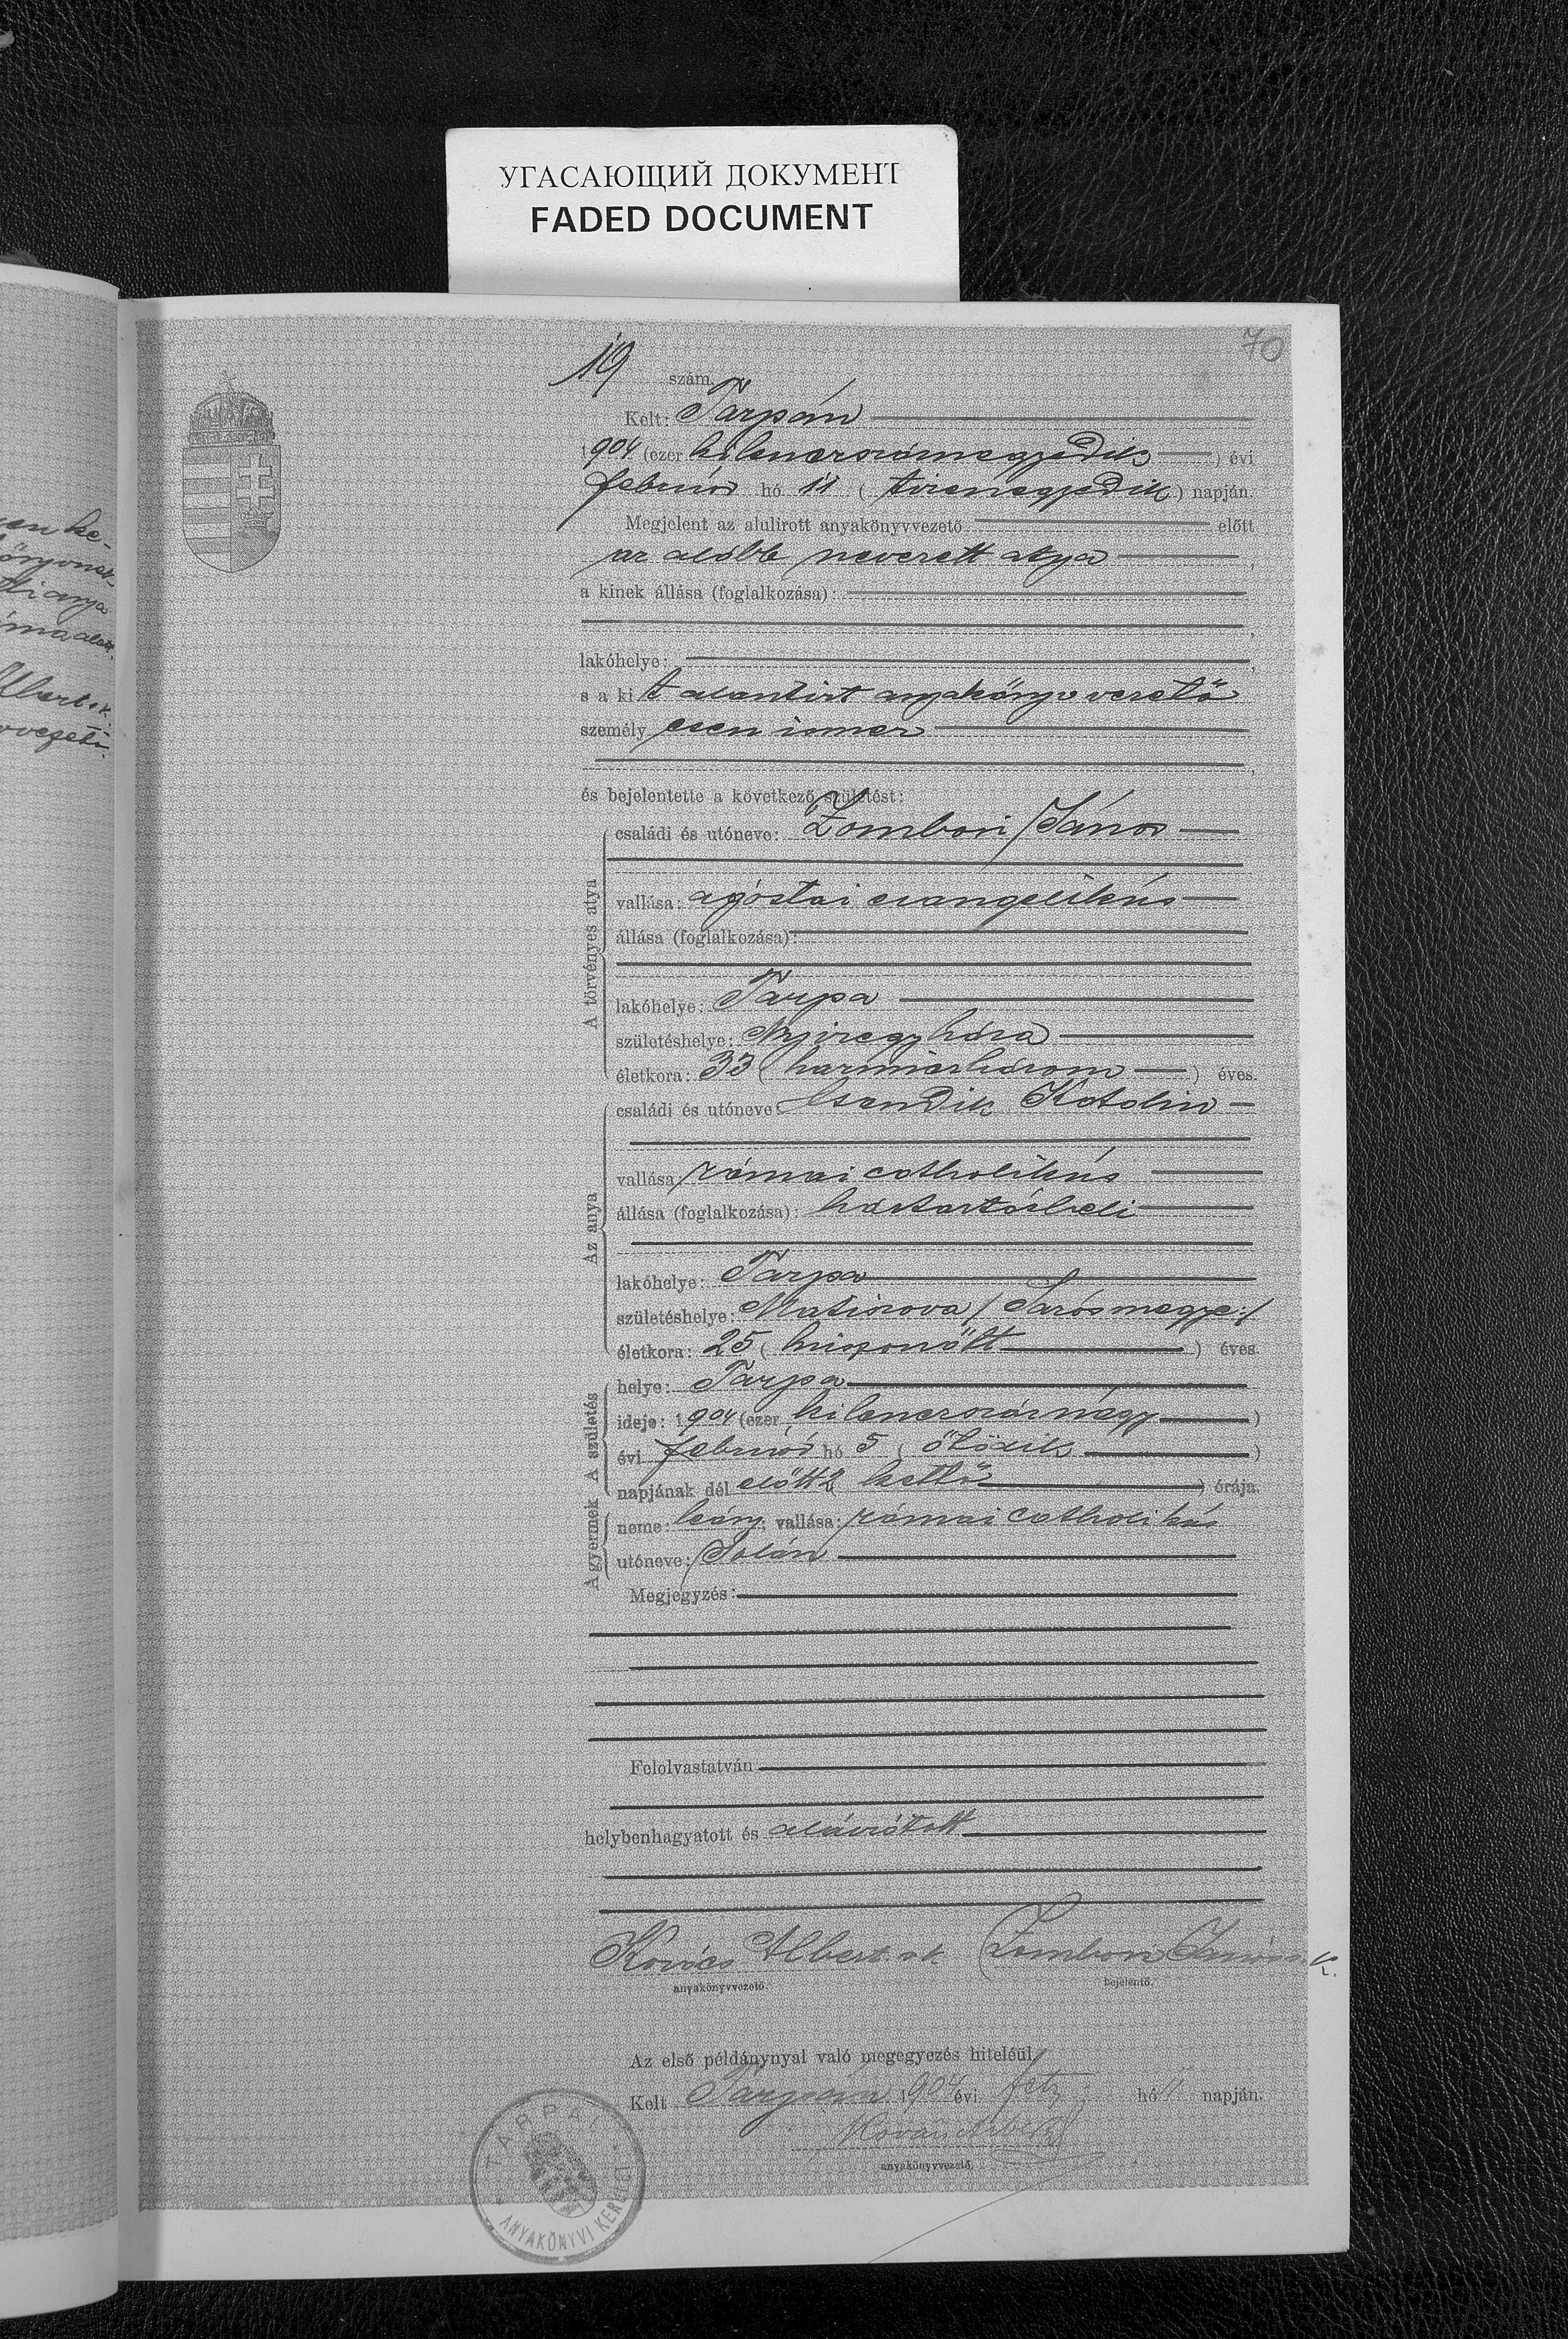 УГАСАЮЩИЙ ДОКУМЕНТ
FADED DOCUMENT
70
19 szám.
Kelt: Tarpán
1904 (ezer kilencszáznegyedik) évi
február hó 11 (tizenegyedik) napján.
Megjelent az alulirott anyakönyvvezető előtt
az alább nevezett atya,
a kinek állása (foglalkozása):
lakóhelye:
s a kit alantirt anyakönyvvezető
személyesen ismer
és bejelentette a következő születést:
A törvényes atya
családi és utóneve: Zombori János
vallása: ágostai evangelikus
állása (foglalkozása):
lakóhelye: Tarpa
születéshelye: Nyiregyháza
életkora: 33 (harminchárom) éves.
Az anya
családi és utóneve: Csendik Katalin
vallása: római catholikus
állása (foglalkozása): háztartásbeli
lakóhelye: Tarpa
születéshelye: /Sáros megye:/
életkora: 25 (huszonött) éves.
A születés
helye: Tarpa
ideje: 1904 (ezer kilencszáznégy)
évi február hó 5 (ötödik)
napjának dél előtt 2 kettő) órája.
A gyermek
neme: leány, vallása: római catholikus
utóneve: Jolán
Megjegyzés:
Felolvastatván
helybenhagyatott és aláiratott
Kovács Albert sk Zombori János k.
anyakönyvvezető. bejelentő.
Az első példánynyal való megegyezés hiteléül.
Kelt Tarpán 1904 évi feb hó 11 napján.
Kovács Albert
anyakönyvvezető.
TARPAI
ANYAKÖNYVI KERÜLET